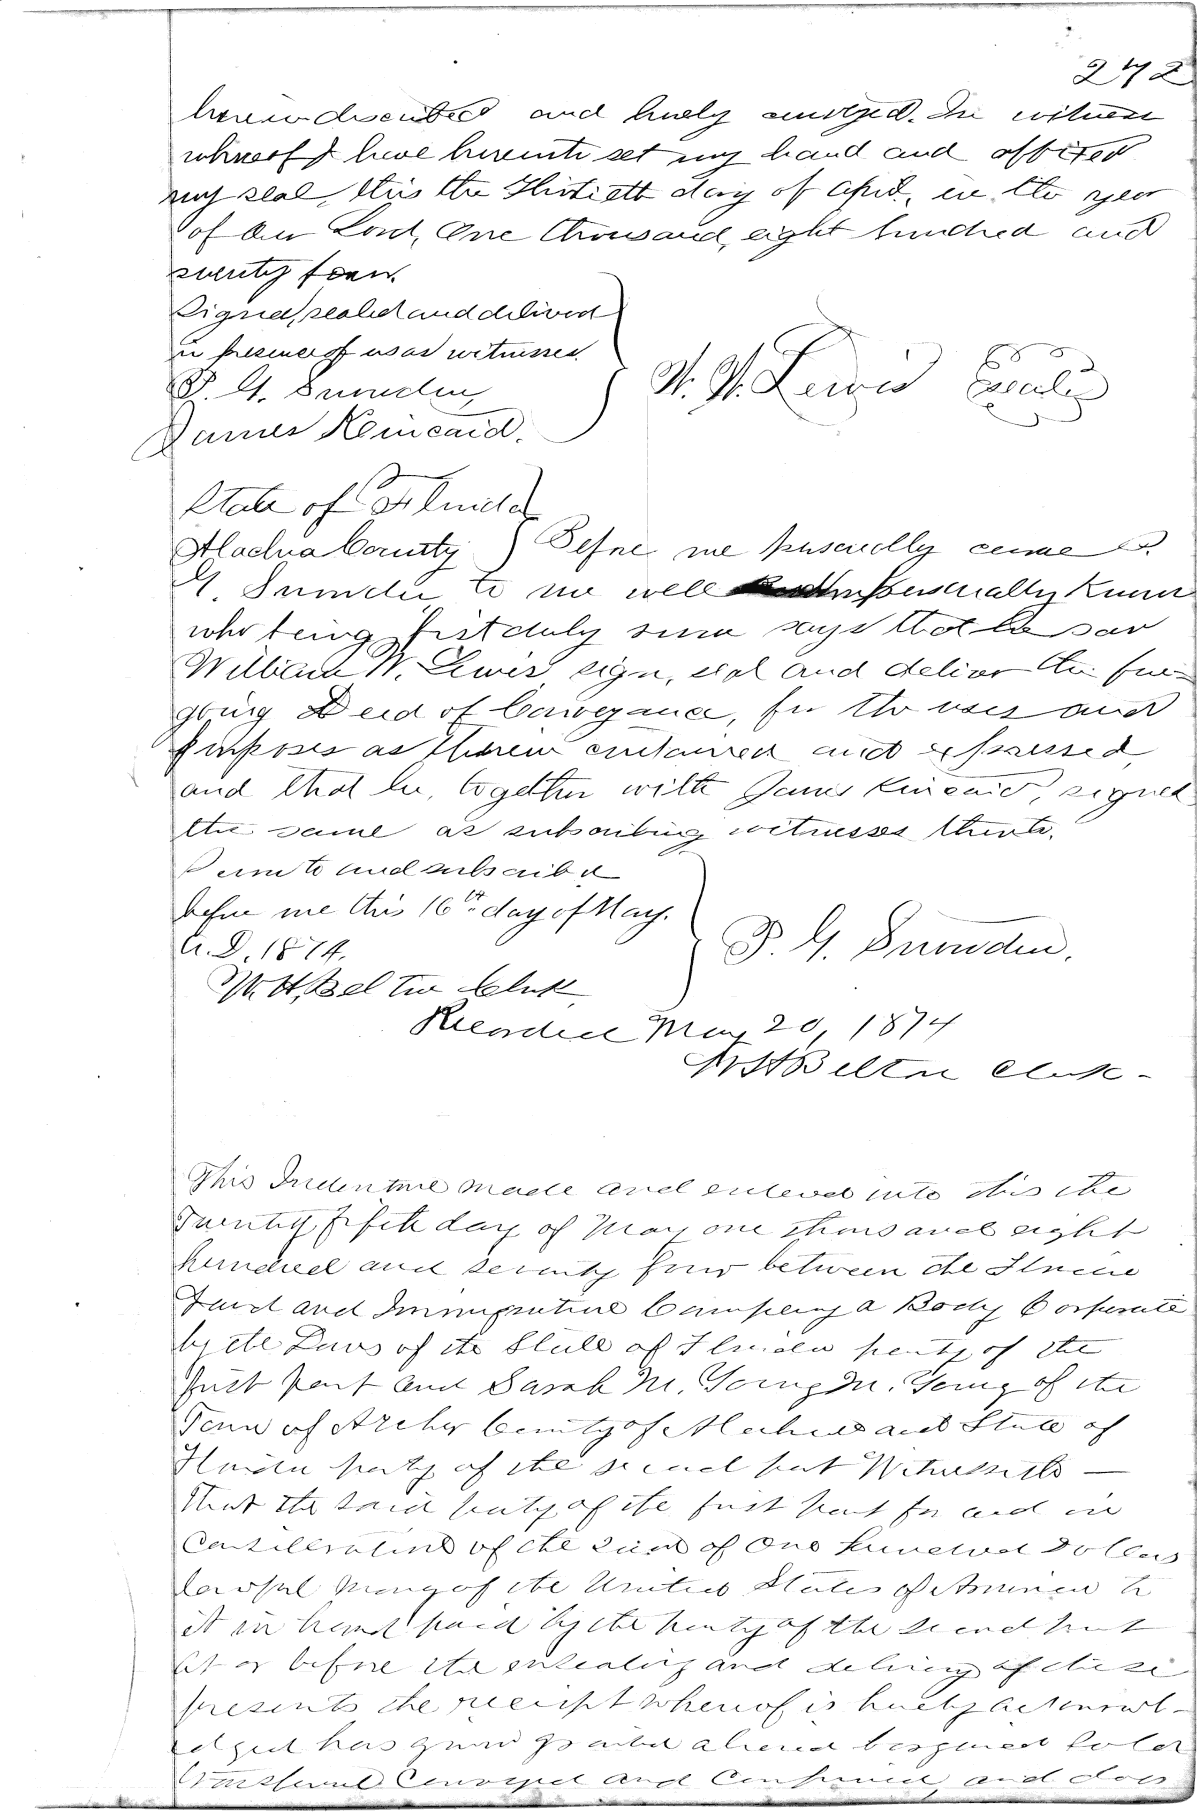 272
herein described and hereby conveyed. In witness
whereof I have hereunto set my hand and affixed
my seal, this the Thirtieth day of April, in the year
of our Lord, One thousand, eight hundred and
seventy four.
Signed, sealed and delivered
in presence of us as witnesses.
P. G. Snowden,
James Kincaid.
W. W. Lewis Seal
State of Florida
Alachua County } Before me personally came P.
G. Snowden, to me well personally known
who being first duly sworn says that he saw
William W. Lewis, sign, seal and deliver the fore-
going Deed of Conveyance, for the uses and
purposes as therein contained and expressed,
and that he, together with James Kincaid, signed
the same as subscribing witnesses thereto.
Sworn to and subscribed
before me this 16th day of May.
A.D. 1874.
W. H. Belton Clerk
P. G. Snowden.
Recorded May 20, 1874
W H Belton Clerk -
This Indenture made and entered into this the
Twenty fifth day of May one thousand eight
hundred and seventy four between the Florida
Land and Immigration Company a Body Corporate
by the Laws of the State of Florida party of the
first part and Sarah M. Young M. Young of the
Town of Archer County of Alachua and State of
Florida party of the second part Witnesseth —
That the said party of the first part for and in
Consideration of the sum of One hundred Dollars
lawful money of the United States of America to
it in hand paid by the party of the second part
at or before the ensealing and delivery of these
presents the receipt whereof is hereby acknowl-
edged has given granted aliened bargained sold
transferred Conveyed and Confirmed, and does